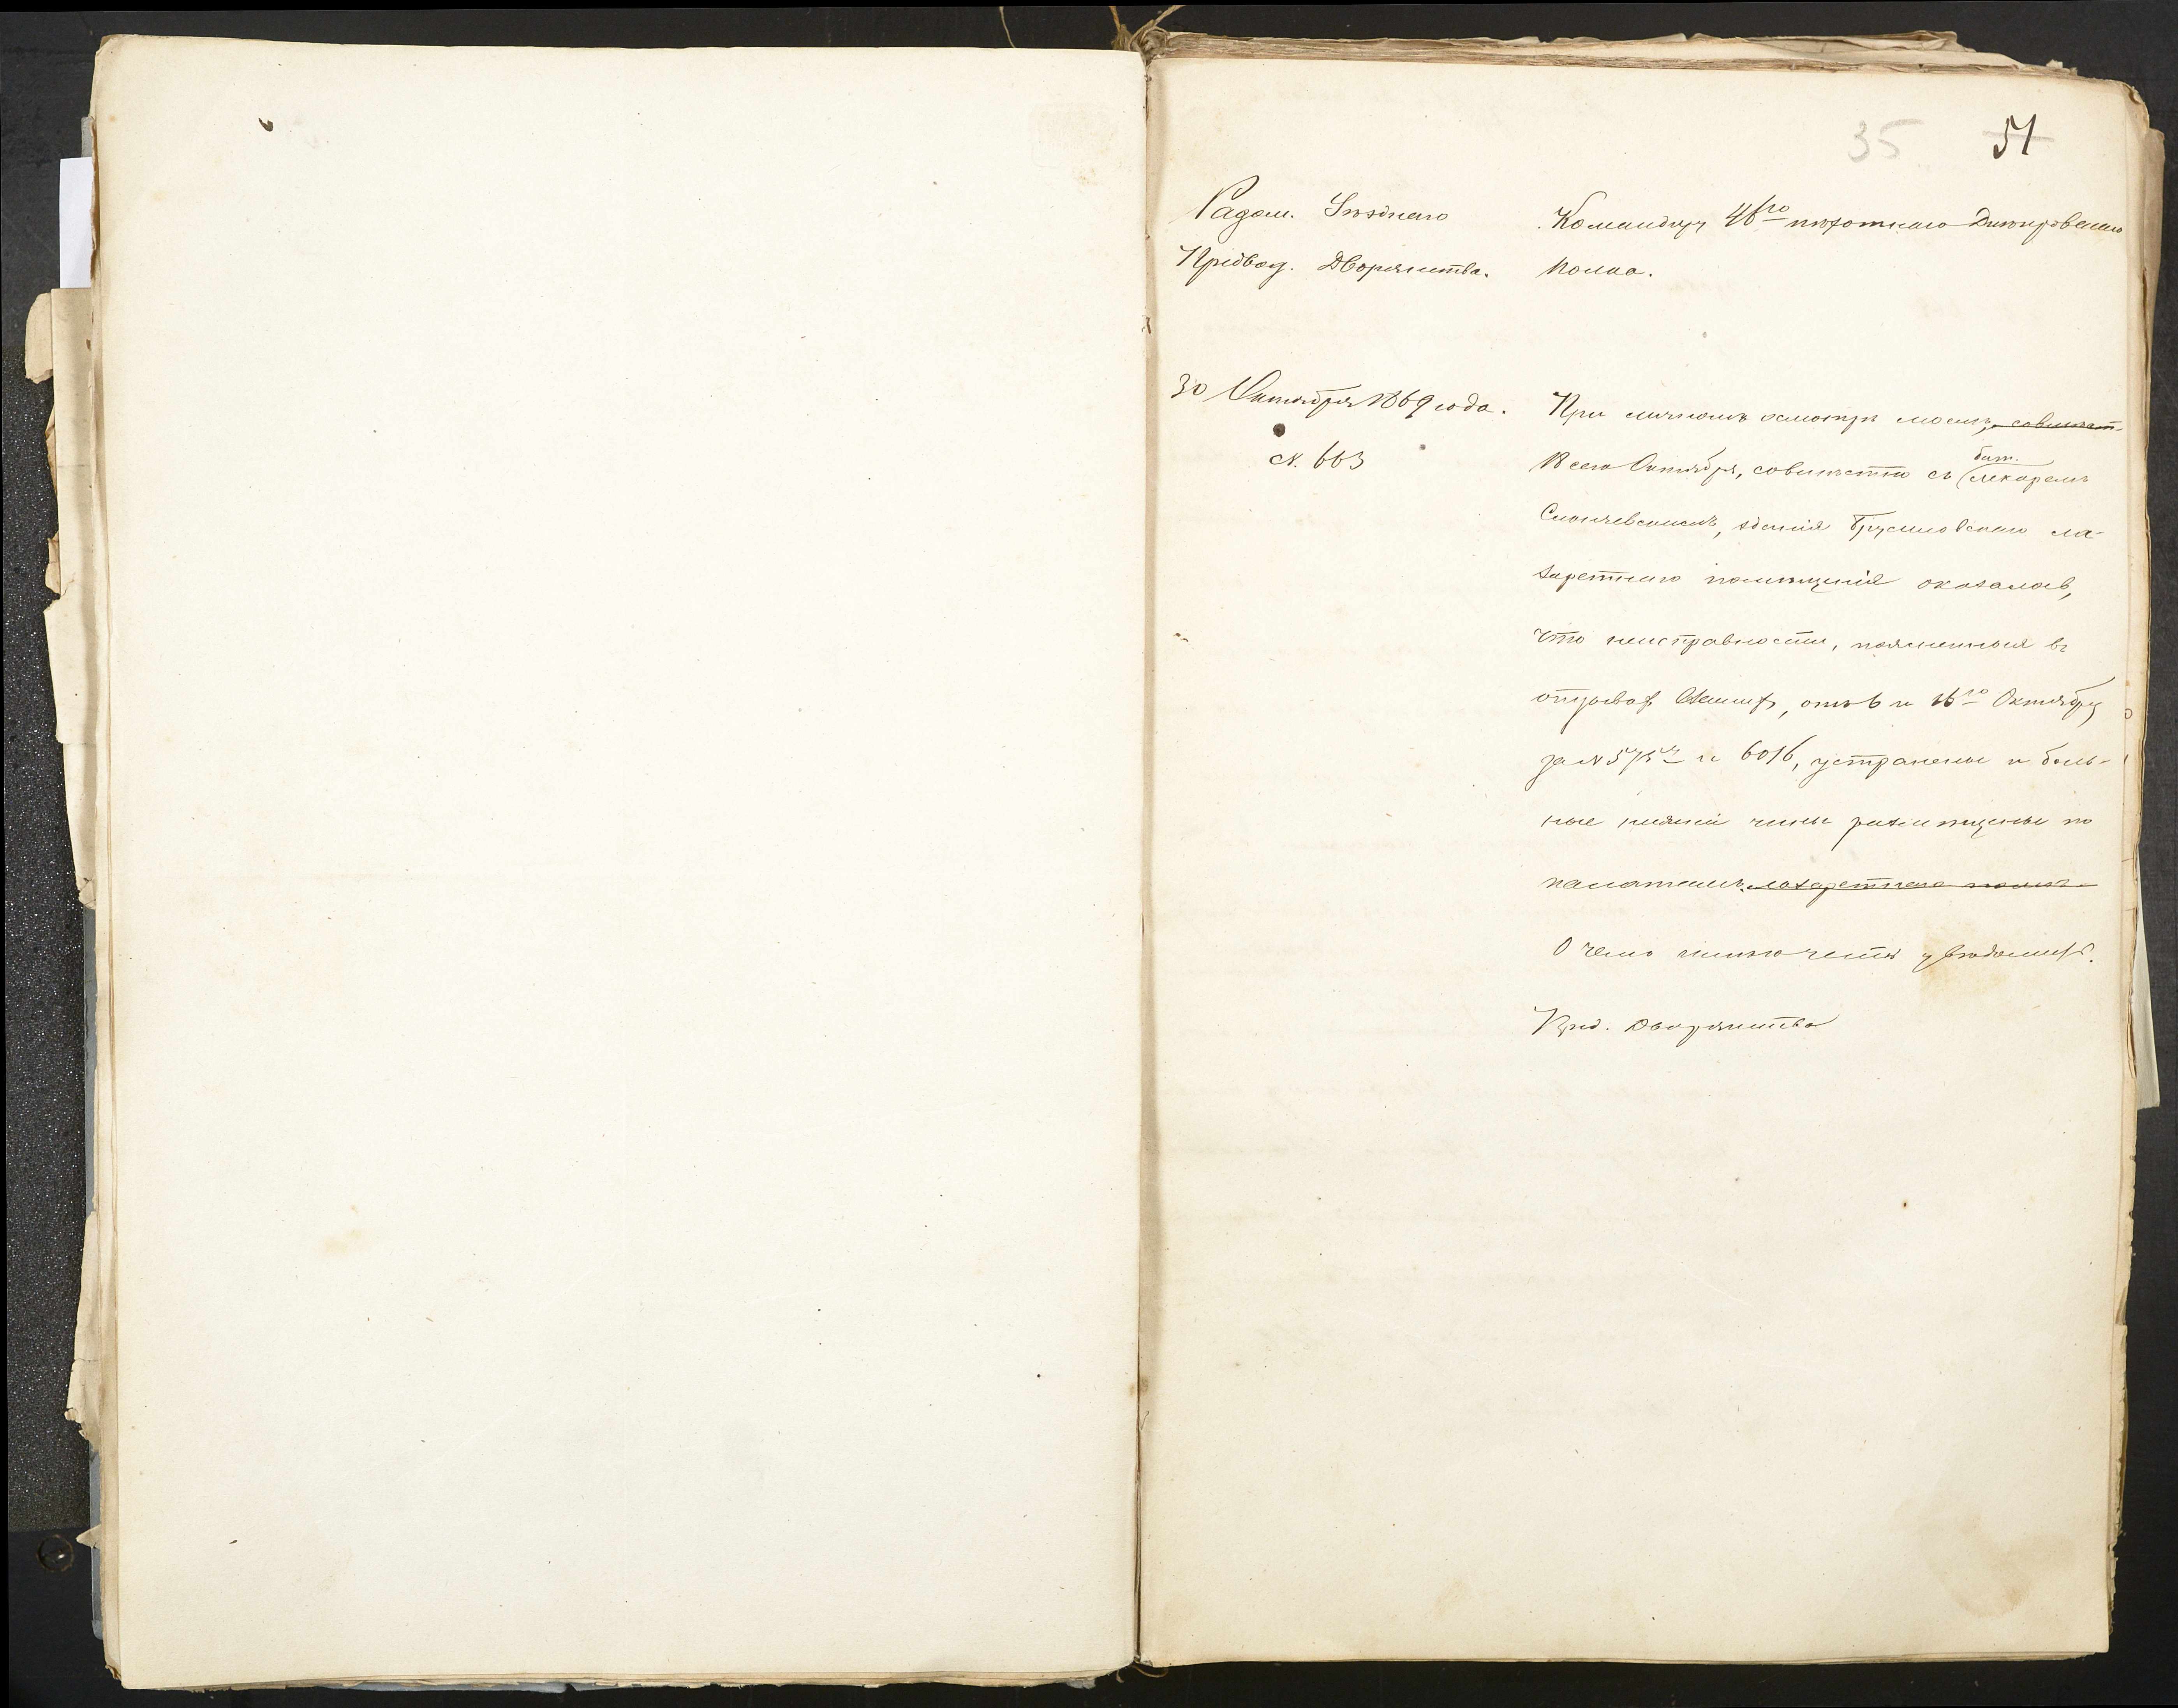 35 51
Радом. Уѣзднаго
Предвод. Дворянства.
30 Октября 1869 года.
N. 663
Командиру 46го пѣхотнаго Днѣпровскаго
полка.
При личномъ осмотрѣ моемъ, совмѣст-
18 сего Октября, совмѣстно съ бат. лекаремъ
зданія Брусиловскаго ла-
заретнаго помѣщенія оказалось,
что неисправности, поясненныя въ
отзывахъ Вашихъ, отъ 6 и 16го Октября
за N 575 и 6016, устранены и боль-
ные нижніе чины размѣщены по
палатамъ. лазаретнаго помѣ-
О чемъ имѣю честь увѣдомить.
Пред. Дворянства